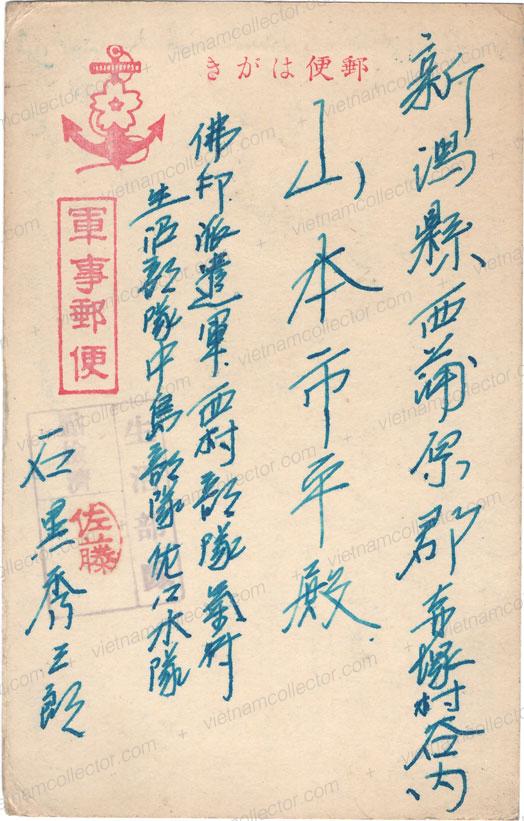 郵便はがき
新潟縣西蒲原郡赤塚村谷内
山本市平殿
佛印派遣軍西村部隊氣付
生沼部隊中島部隊佐口水隊
石黒秀三郎
軍事郵便
佐藤
vietnamcollector.com